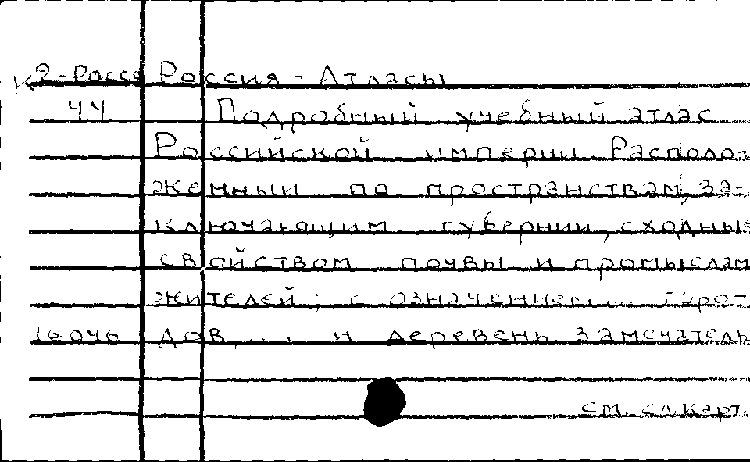 К2-Росс Россия - Атласы
44 Подробный учебный атлас
Российской империи. Располо-
женный по пространствам, за-
ключающим губернии, сходные
свойством почвы и промыслам
жителей; с означением... горо-
16046 дов, ... и деревень замечатель
см. сл. карт.